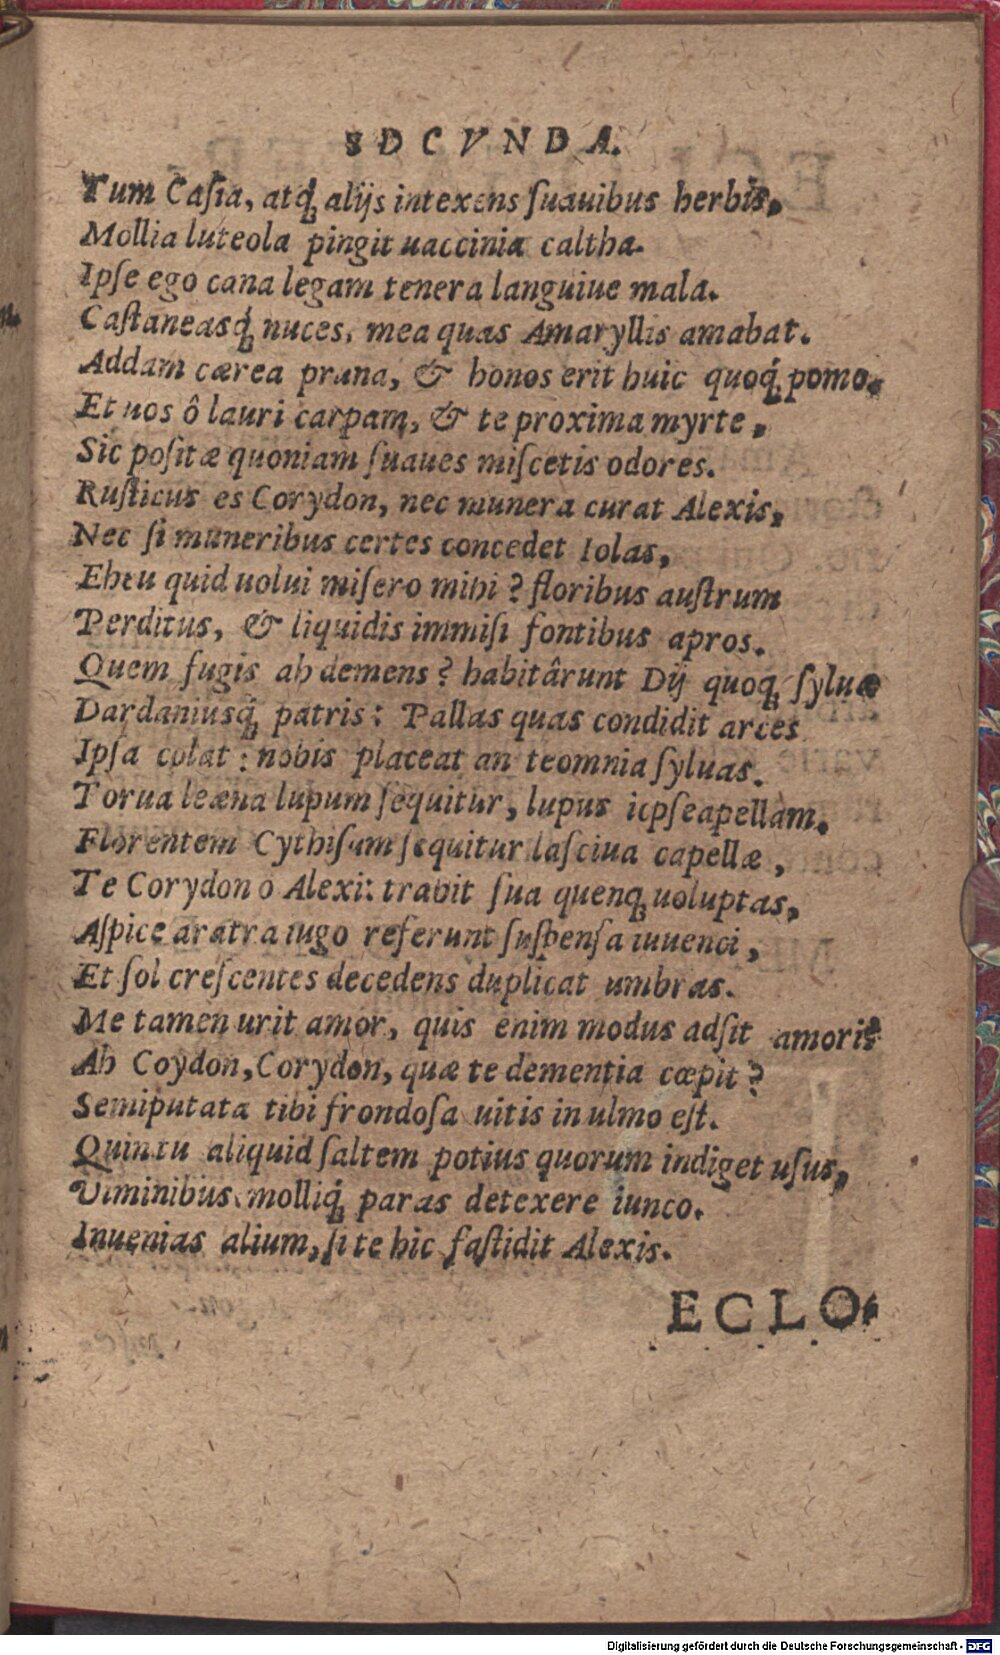 SDCVNDA.
Tum Caſia, atq́; alijs intexens ſuauibus herbis,
Mollia luteola pingit uaccinia caltha.
Ipſe ego cana legam tenera languiue mala.
Caſtaneasq́; nuces, mea quas Amaryllis amabat.
Addam cærea pruna, & honos erit huic quoq́; pomo.
Et uos ô lauri carpam, & te proxima myrte,
Sic poſitæ quoniam ſuaues miſcetis odores.
Ruſticus es Corydon, nec munera curat Alexis,
Nec ſi muneribus certes concedet Iolas,
Eheu quid uolui miſero mihi? floribus auſtrum
Perditus, & liquidis immiſi fontibus apros.
Quem fugis ah demens? habitârunt Dij quoq; ſyluæ
Dardaniusq́; patris: Pallas quas condidit arces
Ipſa colat: nobis placeat an teomnia ſyluas.
Torua leæna lupum ſequitur, lupus icpſeapellam.
Florentem Cythiſum ſequitur laſciua capellæ,
Te Corydon o Alexi: trahit ſua quenq; uoluptas,
Aſpice aratra iugo referunt ſuſpenſa iuuenci,
Et ſol creſcentes decedens duplicat umbras.
Me tamen urit amor, quis enim modus adſit amori?
Ah Coydon, Corydon, quæ te dementia cœpit?
Semiputata tibi frondoſa uitis in ulmo eſt.
Quin tu aliquid ſaltem potius quorum indiget uſus,
Viminibus, molliq́; paras detexere iunco.
Inuenias alium, ſi te hic faſtidit Alexis.
ECLO-
Digitalisierung gefördert durch die Deutsche Forschungsgemeinschaft - DFG